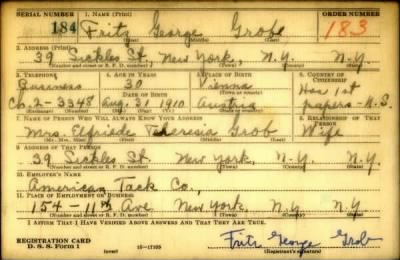 SERIAL NUMBER 1. NAME (Print) ORDER NUMBER
184 Fritz George Grob 183
(First) (Middle) (Last)
2. ADDRESS (Print)
39 Sickles St. New York, N.Y. N.Y.
(Number and street or R. F. D. number) (Town) (County) (State)
3. TELEPHONE 4. AGE IN YEARS 5. PLACE OF BIRTH 6. COUNTRY OF CITIZENSHIP
Business 30 Vienna Has 1st
DATE OF BIRTH
Ch. 2-3348 Aug. 31 1910 Austria papers - U.S.
(Exchange) (No.) (Mo.) (Day) (Yr.) (State or country)
7. NAME OF PERSON WHO WILL ALWAYS KNOW YOUR ADDRESS 8. RELATIONSHIP OF THAT PERSON
Mrs. Elfriede Theresia Grob Wife
(Mr., Mrs., Miss) (First) (Middle) (Last)
9. ADDRESS OF THAT PERSON
39 Sickles St. New York, N.Y. N.Y.
(Number and street or R. F. D. number) (Town) (County) (State)
10. EMPLOYER'S NAME
American Tack Co.,
11. PLACE OF EMPLOYMENT OR BUSINESS
154 - 11th Ave New York, N.Y. N.Y.
(Number and street or R. F. D. number) (Town) (County) (State)
I AFFIRM THAT I HAVE VERIFIED ABOVE ANSWERS AND THAT THEY ARE TRUE.
REGISTRATION CARD
D. S. S. Form 1 16-17105 Fritz George Grob
(Registrant's signature)